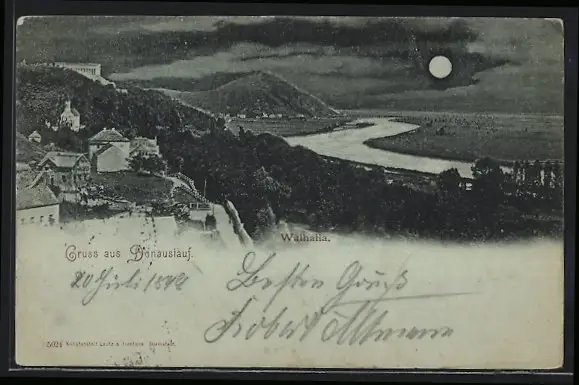 Walhalla.
Gruss aus Donaustauf.
20 Juli
Besten Gruß
Robert Altmann
5024